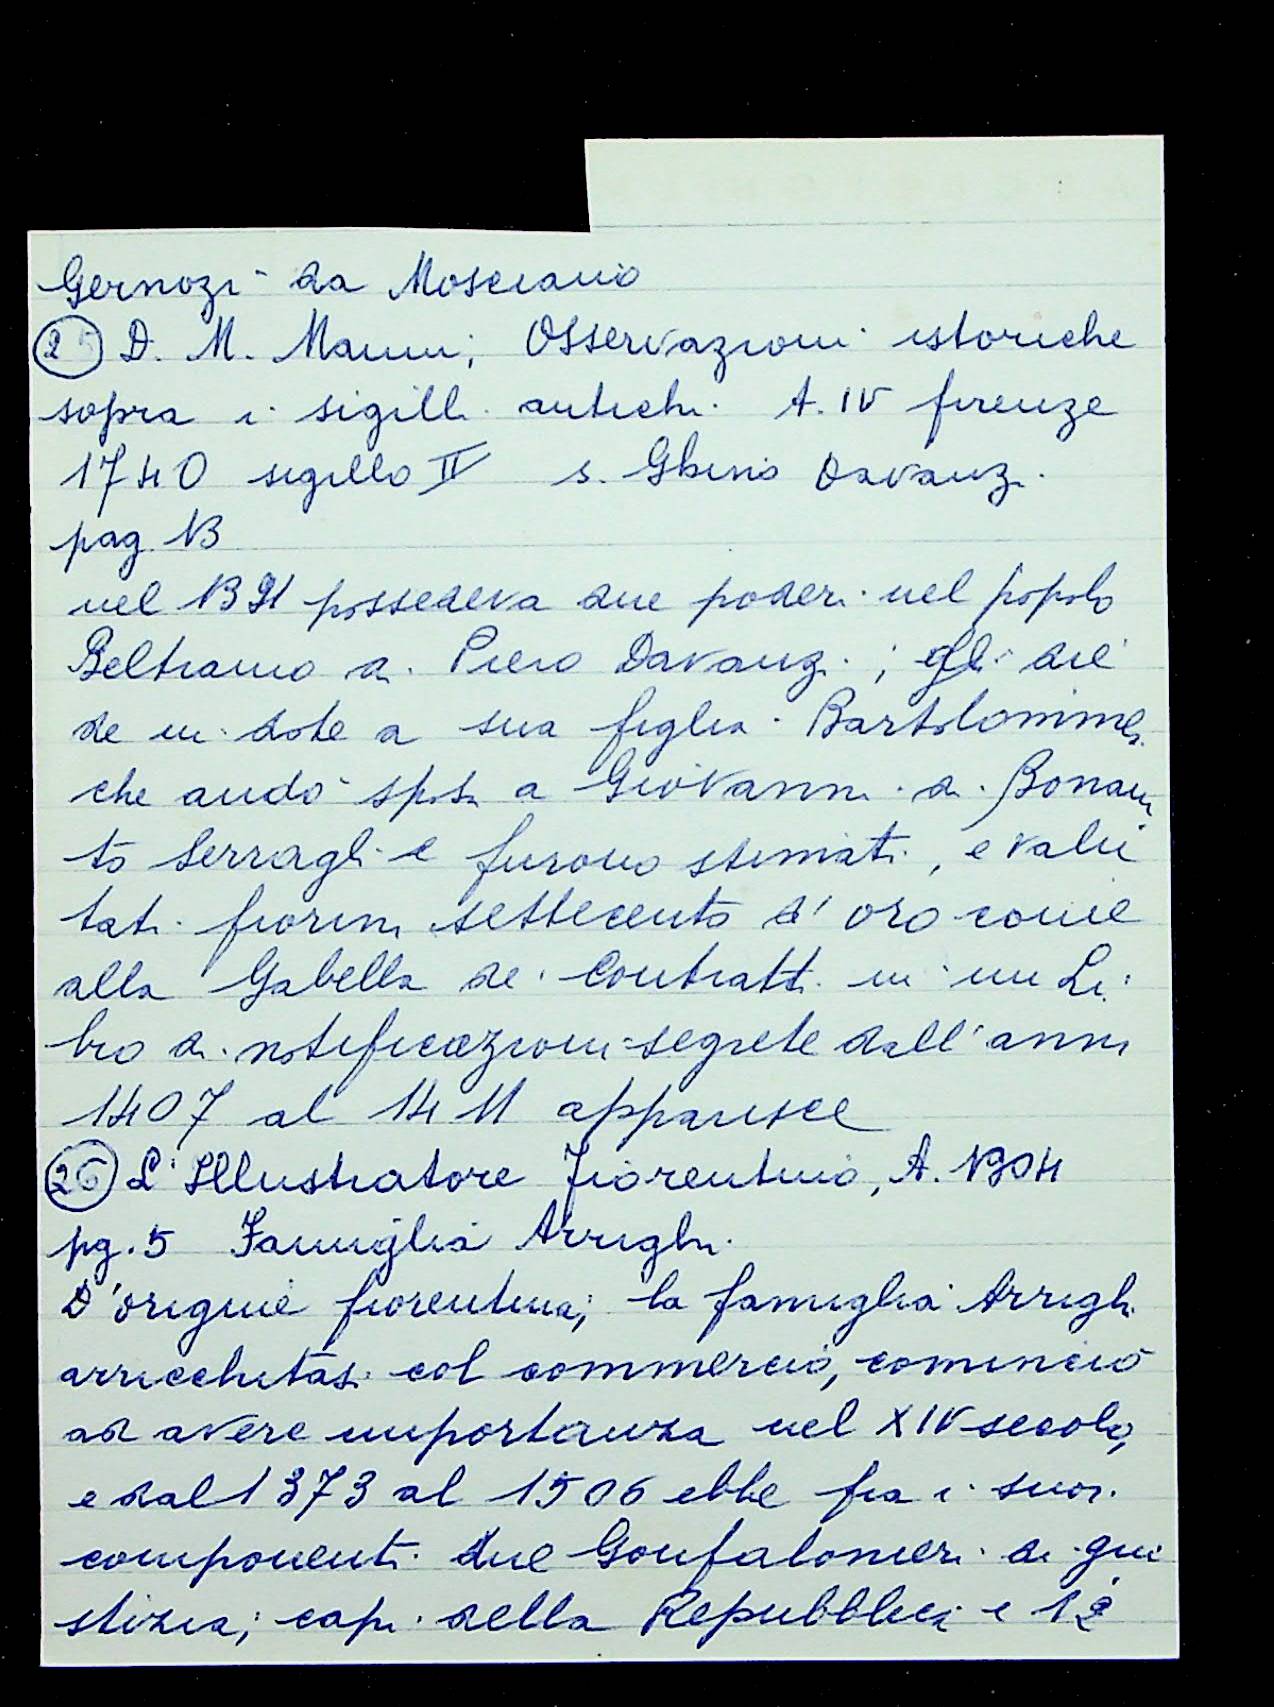 Gernozi da Mosciano
25 D. M. Manni; Osservazioni istoriche
sopra i sigilli antichi. A. IV firenze
1740 sigillo II s. Ghino Davanzi.
pag. 13
nel 1391 possedeva due poderi nel popolo
Beltramo di Piero Davanzi; gli die
de in dote a sua figlia Bartolommea
che andò sposa a Giovanni di Bonaiu
to Serragli e furono stimati, e valu
tati fiorini settecento d'oro come
alla Gabella de' Contratti in un Li
bro di notificazioni segrete dall'anni
1407 al 1411 apparisce
26 L'Illustratore Fiorentino, A. 1904
pg. 5 Famiglia Arrighi.
D'origine fiorentina; la famiglia Arrighi
arricchitasi col commercio, cominciò
ad avere importanza nel XIV secolo,
e dal 1373 al 1506 ebbe fra i suoi
componenti due Gonfalonieri di giu
stizia; capi della Repubblica e 12